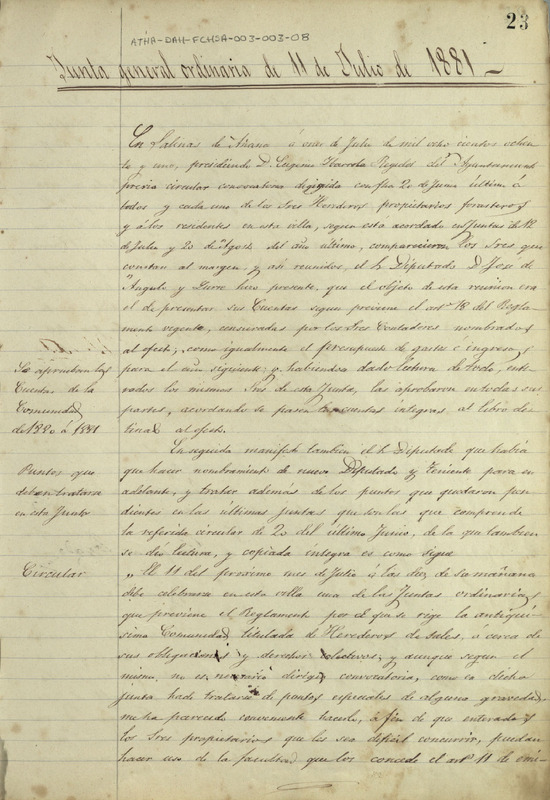 23
ATHA-DAH-FCHSA-003-003-08
Junta general ordinaria de 11 de Julio de 1881
En Salinas de Añana á once de Julio de mil ocho cientos ochen
ta y uno, presidiendo D. Eugenio Regidor del Ayuntamiento
previa circular convocatoria dirigida con fha 20 de Junio último á
todos y cada uno de los Sres Herederos propietarios forasteros
y á los residentes en esta villa, segun está acordado en Juntas de 12
de Julio y 20 de Agosto del año ultimo, comparecieron los Sres que
constan al margen, y asi reunidos, el Sr Diputado D. José de
Angulo y hizo presente, que el objeto de esta reunion era
el de presentar sus Cuentas segun previene el artº 18 del Regla-
mento vigente, censuradas por los Sres Contadores nombrados
al efecto; como igualmente el presupuesto de gastos é ingresos
para el año siguiente; y habiendose dado lectura de todo, ente-
rados los mismos Sres de esta Junta, las aprobaron en todas sus
partes, acordando se pasen las cuentas integras al libro des
tinado al efecto.
Se aprueban las
Cuentas de la
Comunidad
de 1880 á 1881
En seguida manifestó tambien el Sr Diputado que habia
que hacer nombramiento de nuevo Diputado y Teniente para en
adelante, y tratar además de los puntos que quedaron pen
dientes en las ultimas juntas que son los que comprende
la referida circular de 20 del último Junio, de la que tambien
se dió lectura, y copiada integra es como sigue
Puntos que
deben tratarse
en esta Junta
Circular
"El 11 del proximo mes de Julio á las diez de su mañana
debe celebrarse en esta villa una de las Juntas ordinarias
que previene el Reglamento por el que se rige la antiqui-
sima Comunidad titulada de Herederos de Sales, ó cerca de
sus obligaciones y derechos colectivos; y aunque segun el
mismo no es necesario dirigir convocatoria, como en dicha
junta ha de tratarse de puntos especiales de alguna gravedad,
me ha parecido conveniente hacerlo, á fin de que enterados
los Sres propietarios que les sea dificil concurrir, puedan
hacer uso de la facultad que los concede el artº 11 de omi-